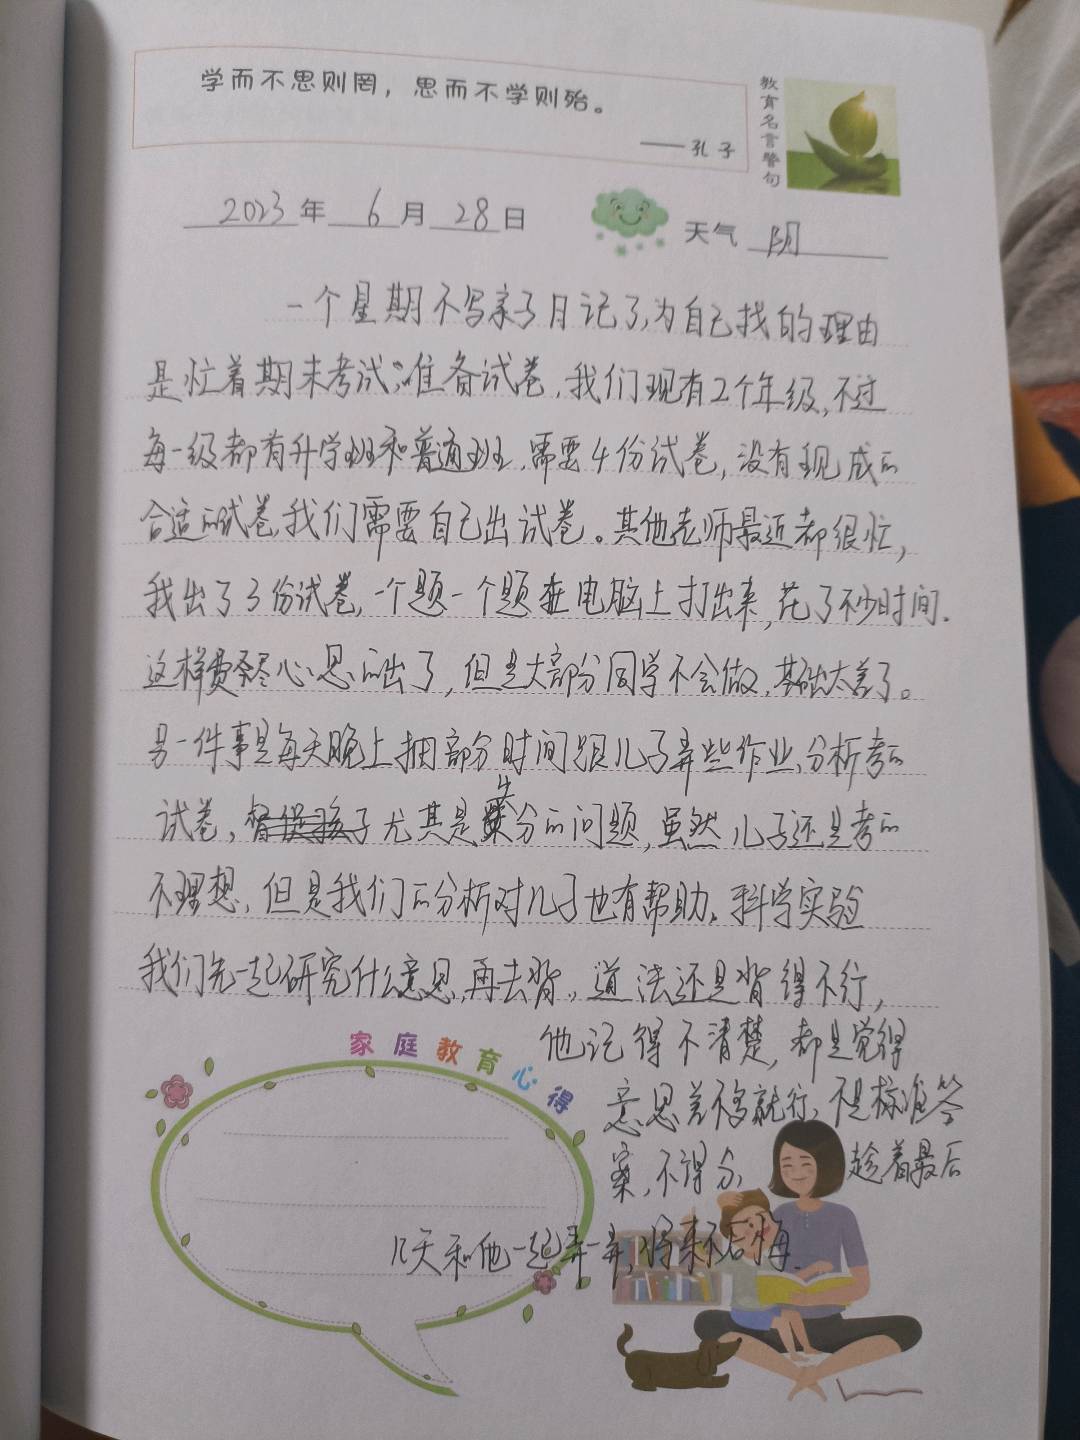 学而不思则罔，思而不学则殆。
——孔子
教育名言警句
2023年6月28日
天气 阴
一个星期不写亲子日记了,为自己找的理由
是忙着期末考试,准备试卷,我们现有2个年级,不过
每一级都有升学班和普通班,需要4份试卷,没有现成的
合适的试卷,我们需要自己出试卷。其他老师最近都很忙,
我出了3份试卷,一个题一个题在电脑上打出来,花了不少时间.
这样费尽心思的出了,但是大部分同学不会做,基础太差了。
另一件事是每天晚上抽部分时间跟儿子弄些作业,分析考的
试卷,督促孩子尤其是失分的问题,虽然儿子还是考的
不理想,但是我们的分析对儿子也有帮助。科学实验
我们先一起研究什么意思,再去背,道法还是背得不行,
他记得不清楚,都是觉得
家庭教育心得
意思差不多就行,不是标准答
案,不得分,趁着最后
几天和他一起弄一弄,将来不后悔.